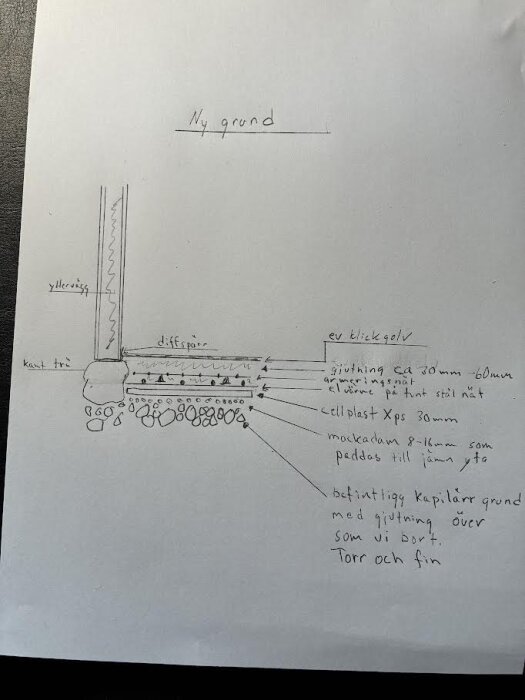 Ny grund
yttervägg
diffspärr
kant trä
ev klickgolv
gjutning ca 30mm-60mm
armeringsnät
elvärme på tunt stål nät
cellplast Xps 30mm
mackadam 8-16mm som
paddas till jämn yta
befintligg kapilärr grund
med gjutning över
som vi bort.
Torr och fin